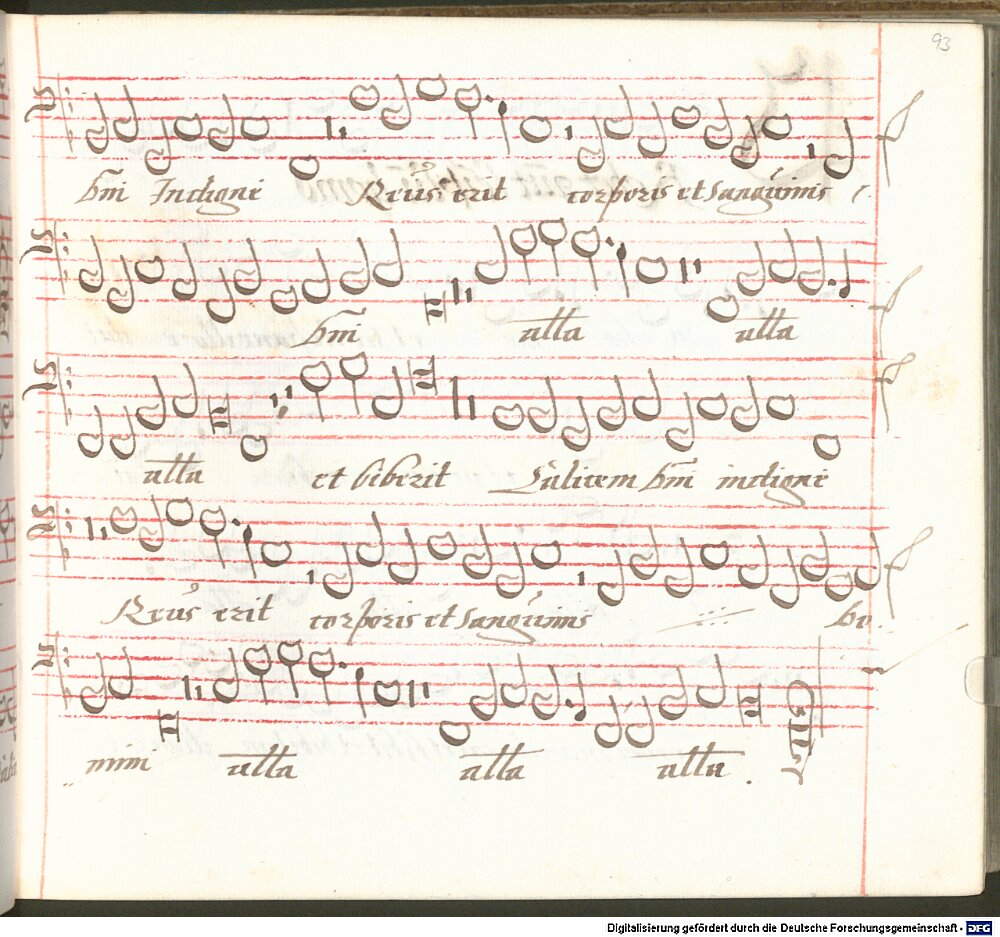 93
dñi Indigne Reus erit corporis et sanguinis
dñi alla alla
alla et biberit Calicem dñi indigne
Reus erit corporis et sanguinis do
mini alla alla alla.
Digitalisierung gefördert durch die Deutsche Forschungsgemeinschaft - DFG